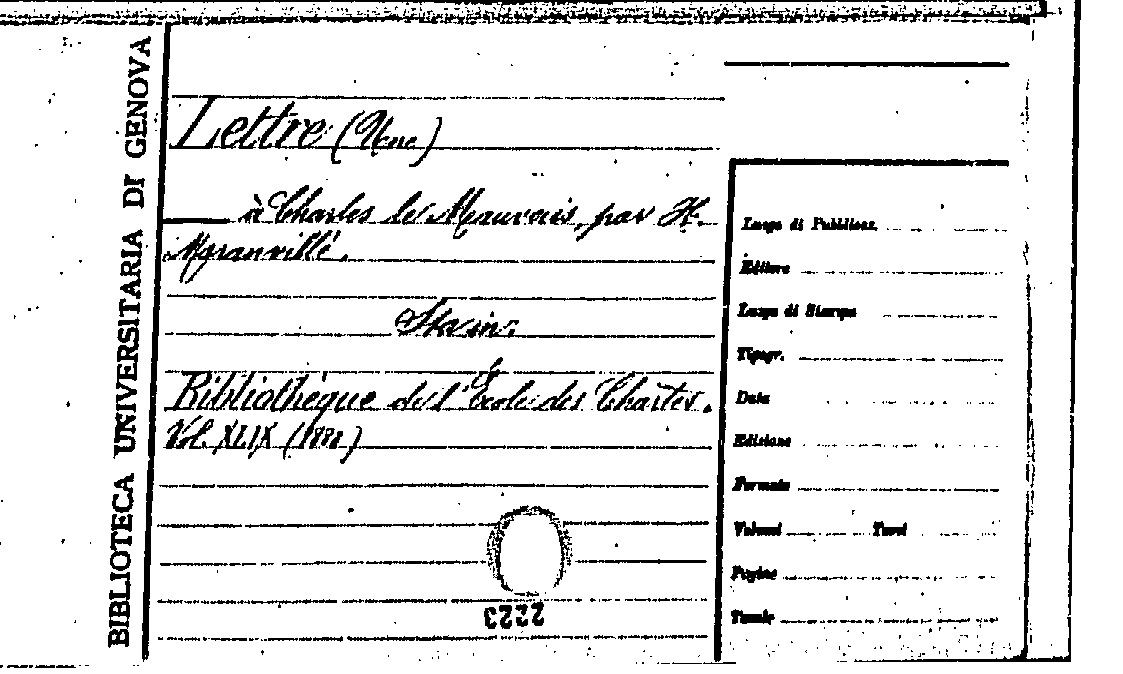 BIBLIOTECA UNIVERSITARIA DI GENOVA
Lettre (Une)
à Charles le Mauvais, par H.
Moranvillé.
Bibliothèque de l'École des Chartes.
Vol. XLIX (1888)
2223
Luogo di Pubblicaz.
Editore
Luogo di Stampa
Tipogr.
Data
Edizione
Formato
Volumi Tomi
Pagine